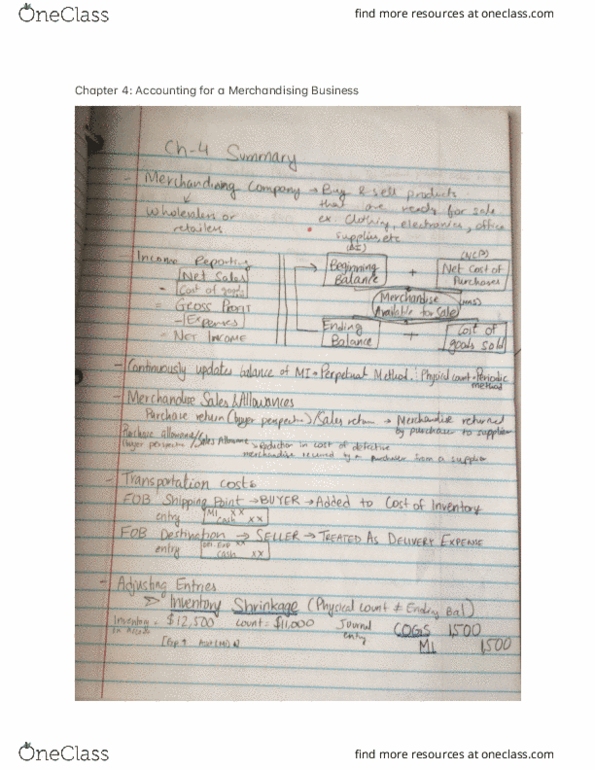 OneClass
find more resources at oneclass.com
Chapter 4: Accounting for a Merchandising Business
Ch-4 Summary
- Merchandising Company → Buy & sell products
that are ready for sale
Wholesalers or
retailers
ex. clothing, electronics, office
supplies, etc
- Income Reporting
Net Sales
- Cost of goods
= Gross Profit
- Expenses
= Net Income
(BI)
Beginning
Balance
+
(NCP)
Net Cost of
Purchases
Merchandise
Available for Sale
(MAS)
Ending
Balance
+
Cost of
goods sold
- Continuously updates balance of MI = Perpetual Method. Physical count = Periodic
method
- Merchandise Sales & Allowances
Purchase return (buyer perspective) / Sales return → Merchandise returned
by purchaser to supplier
Purchase allowance / Sales Allowance → reduction in cost of defective
(buyer perspective)
merchandise received by a purchaser from a supplier
- Transportation costs
FOB Shipping Point → BUYER → Added to Cost of Inventory
entry
MI XX
Cash XX
FOB Destination → SELLER → TREATED AS DELIVERY EXPENSE
entry
Del. Exp XX
Cash XX
- Adjusting Entries
Inventory Shrinkage (Physical count ≠ Ending Bal)
Inventory = $12,500 count = $11,000 Journal COGS 1,500
entry
MI 1,500
OneClass
find more resources at oneclass.com